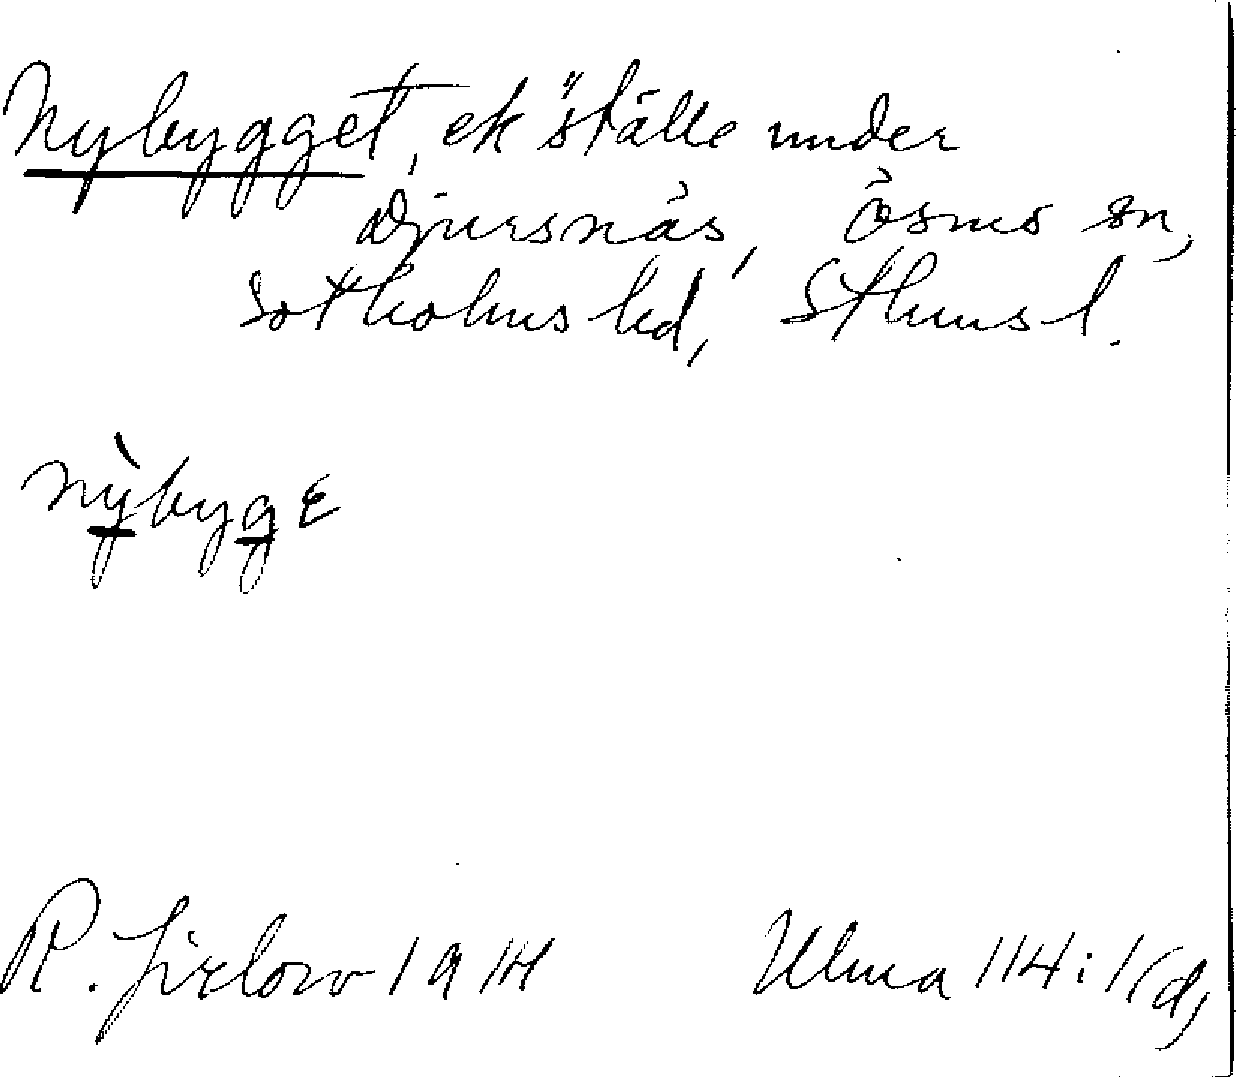 Nybygget, ek ställe under
Djursnäs, Ösmo sn,
Sotholms hd, Sthms l.
nỳbygε
R. Jirlow 1914 Ulma 114:1(d)